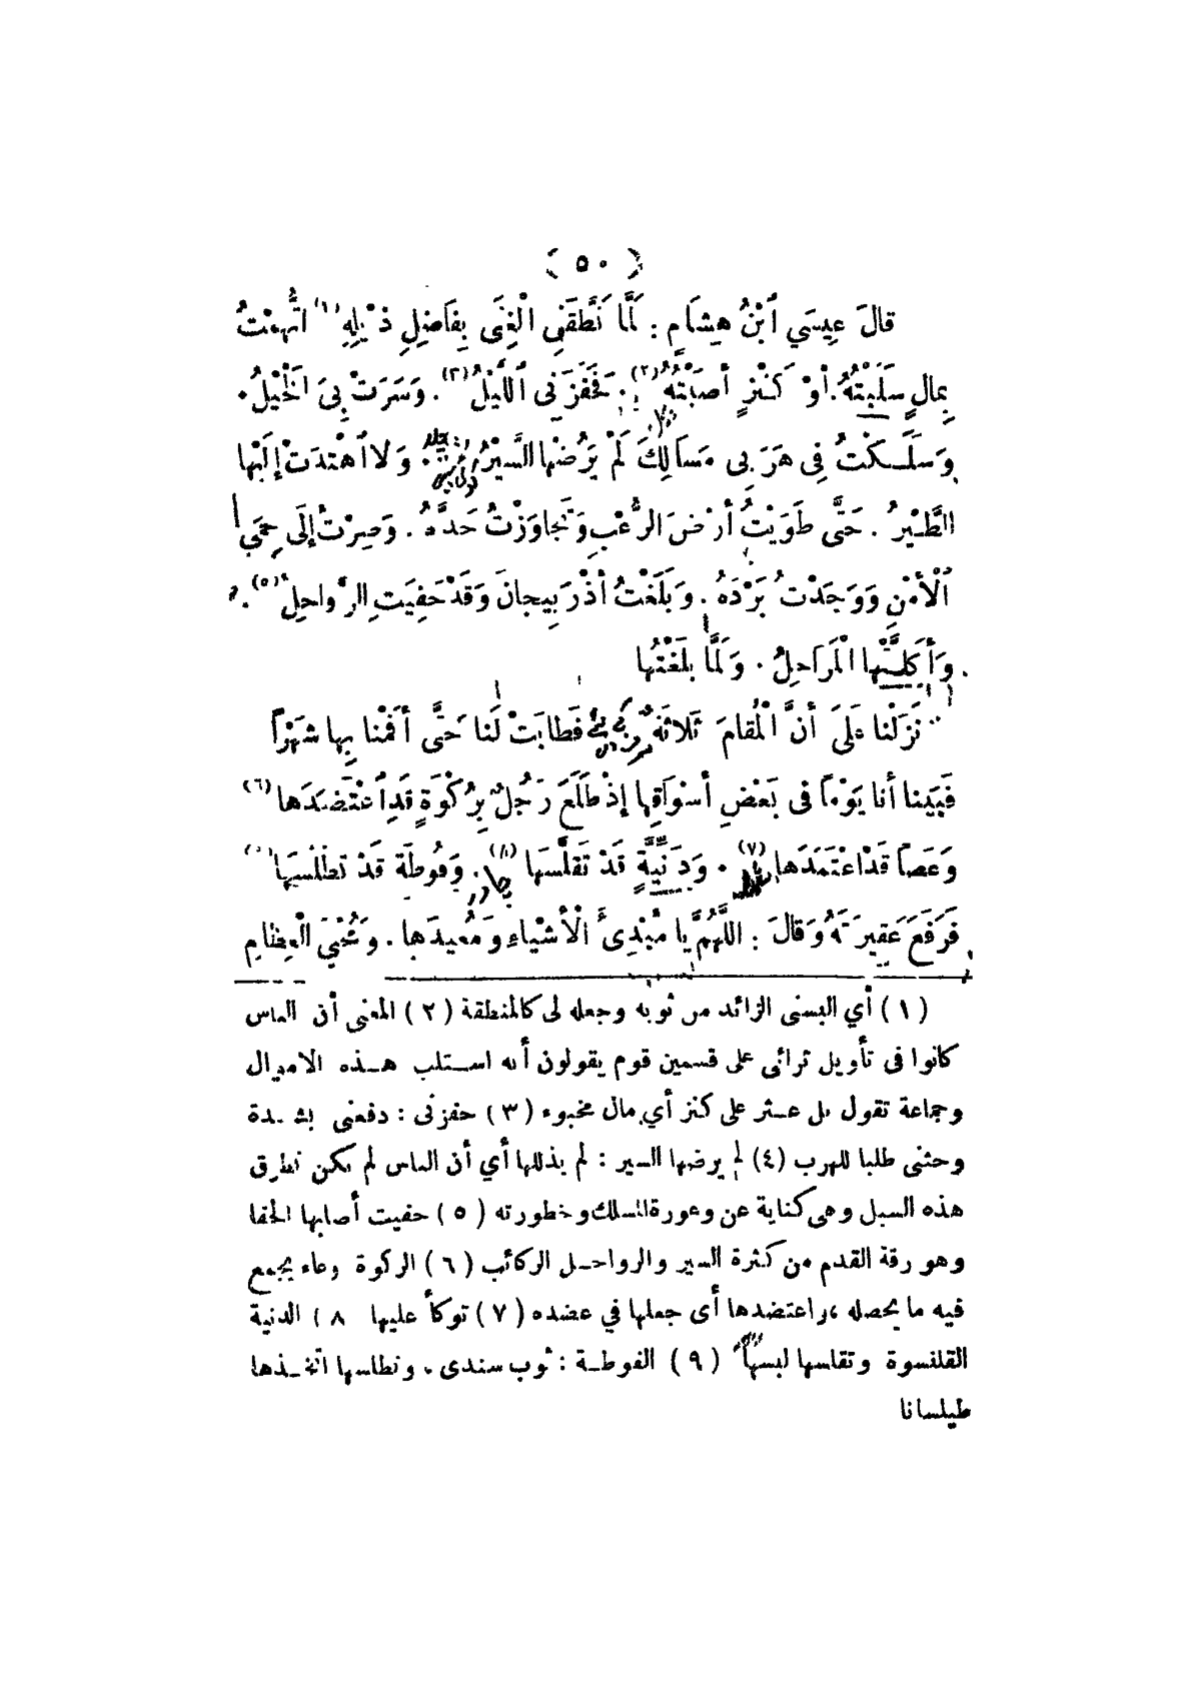 ( ٥٠ )
قالَ عِيسَي ٱبْنُ هِشَامٍ : لَمَّا نَطَّقَنِى الْغِنَى بِفَاضِلِ ذَيْلِهِ (١) اتُّهِمْتُ
بِمالٍ سَلَبْتُهُ. أوْ كَنْزٍ أصَبْتُهُ (٢). فَحَفَزَنِى ٱللَّيْلُ (٣). وَسَرَتْ بِىَ الْخَيْلُ.
وَسَلَكْتُ فِى هَرَبِى مَسَالِكَ لَمْ يَرُضْها السَّيْرُ. وَلا ٱهْتَدَتْ إلَيْها
الطَّيْرُ . حَتَّى طَوَيْتُ أرْضَ الرُّعْبِ وَتَجاوَزْتُ حَدَّهُ . وَصِرْتُ إلَى حِمَي
ٱلْأمْنِ وَوَجَدْتُ بَرْدَهُ . وَبَلَغْتُ أذْرَبِيجانَ وَقَدْ حَفِيَتِ الرَّواحِلُ (٥).
وَأكَلَتْها الْمَرَاحِلُ . وَلَمَّا بلَغْتُها
نَزَلْنا عَلَى أنَّ الْمُقامَ ثَلاثَةٌ فَطابَتْ لَنا حَتَّى أقَمْنا بِها شَهْرًا
فَبَيْنا أنا يَوْماً فى بَعْضِ أسْوَاقِها إذْ طَلَعَ رَجُلٌ بِرَكْوَةٍ قَدِ ٱعْتَضَدَها (٦)
وَعَصاً قَدْ اعْتَمَدَها (٧) . وَدَنِّيَّةٍ قَدْ تَقَلَّسَها (٨). وَفُوطَةٍ قَدْ تَطَلَّسَها
فَرَفَعَ عَقِيرَتَهُ وَقالَ : اللَّهُمَّ يا مُبْدِئَ الْأشْياءِ وَمُعِيدَها . وَمُحْيِيَ الْعِظامِ
(١) أي البسنى الزائد من ثوبه وجعله لى كالمنطقة (٢) المعنى أن الناس
كانوا فى تأويل ثرائى على قسمين قوم يقولون أنه استلب هذه الاموال
وجماعة تقول بل عثر على كنز أي مال مخبوء (٣) حفزنى : دفعنى بشدة
وحثنى طلبا للهرب (٤) لم يرضها السير : لم يذللها أي أن الناس لم تكن تطرق
هذه السبل وهى كناية عن وعورة المسلك وخطورته (٥) حفيت أصابها الحفا
وهو رقة القدم من كثرة السير والرواحل الركائب (٦) الركوة وعاء يجمع
فيه ما يحصله ، واعتضدها أى جعلها في عضده (٧) توكأ عليها ٨) الدنية
القلنسوة وتقلسها لبسها (٩) الفوطة : ثوب سندى . وتطلسها اتخذها
طيلسانا